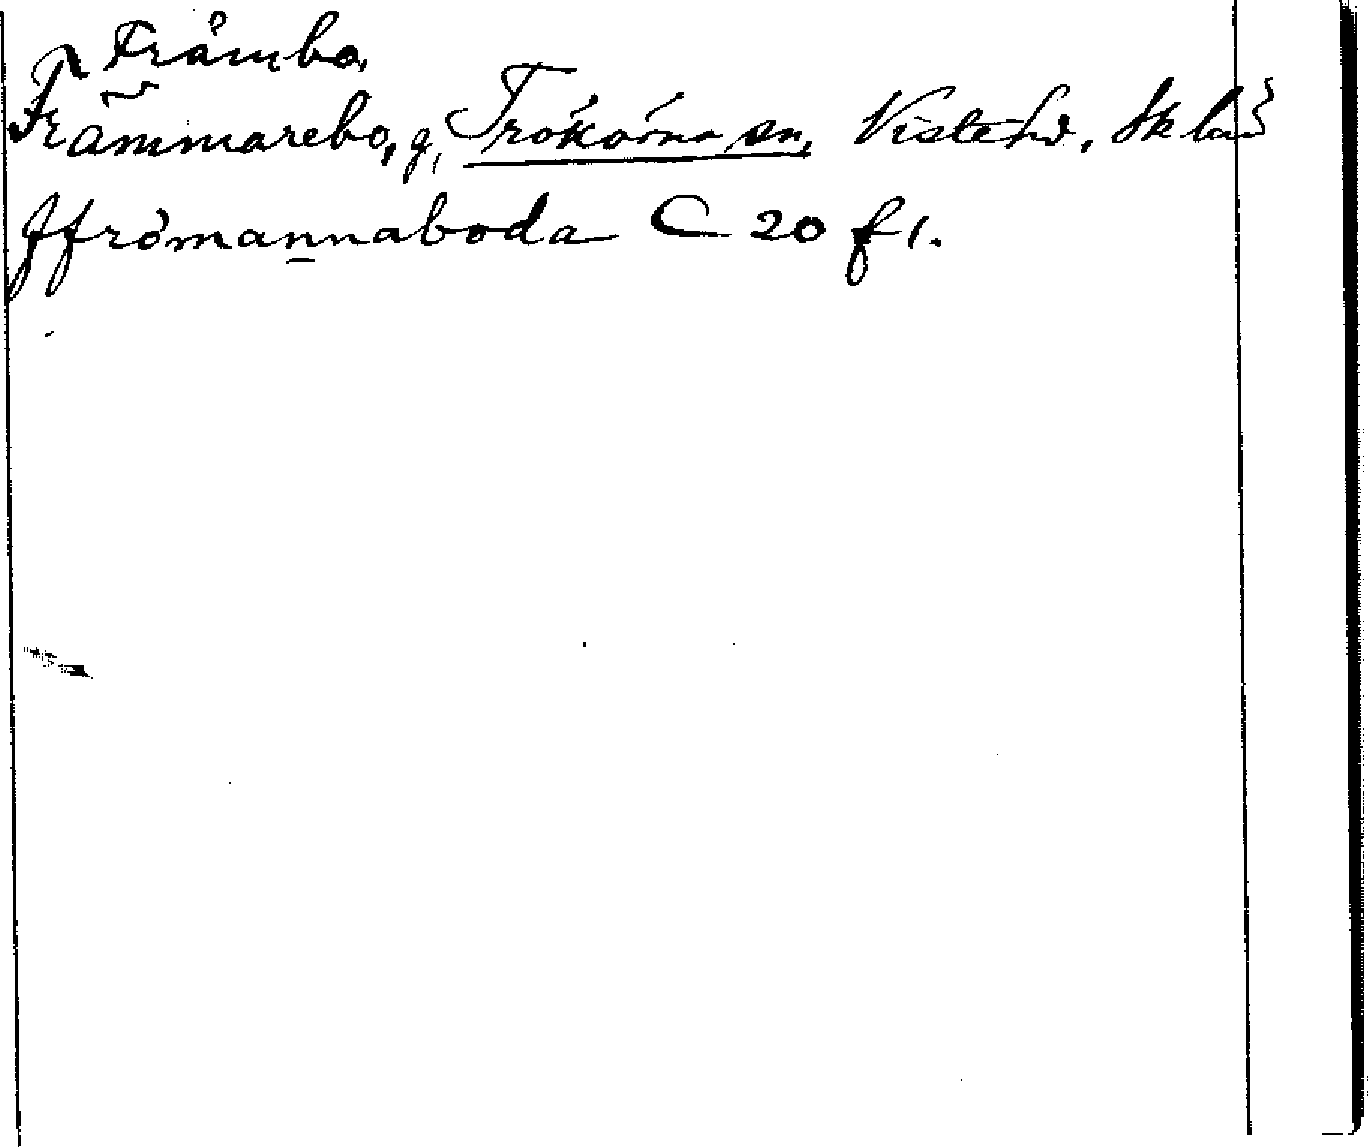 Främbo,
Främmarebo, g, Trökörna sn, Viste hd, Skbg
ffrömannaboda C 20 f 1.